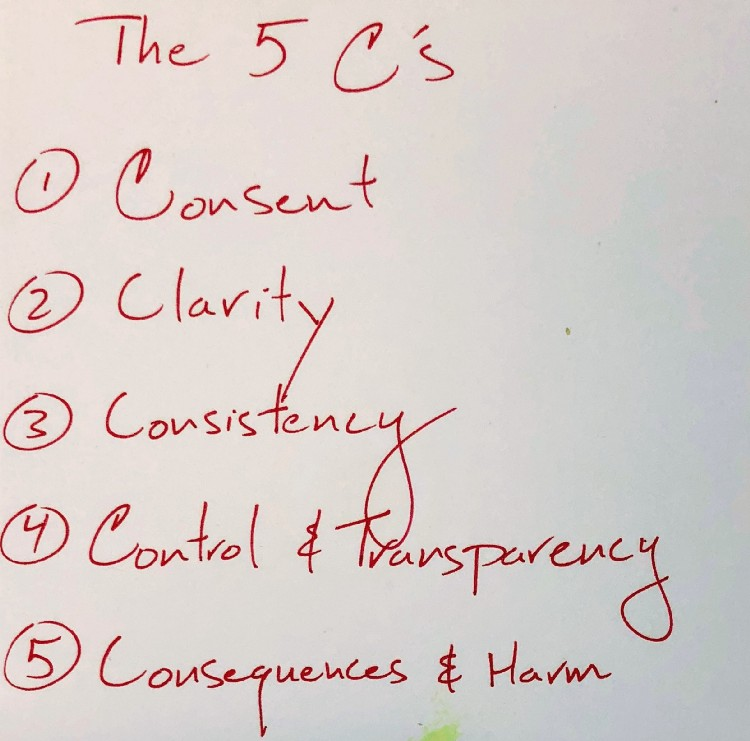 The 5 C's
① Consent
② Clarity
③ Consistency
④ Control & Transparency
⑤ Consequences & Harm